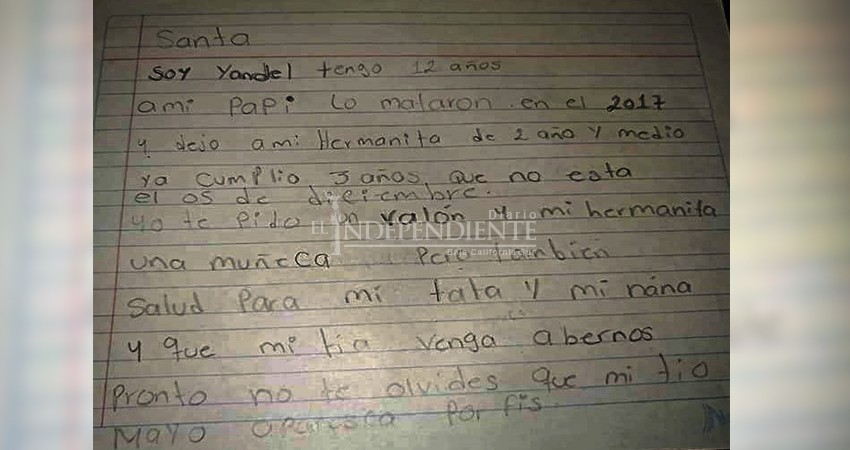 Santa
soy Yandel tengo 12 años
ami papi lo mataron en el 2017
y dejo ami Hermanita de 2 año y medio
ya cumplio 3 años que no esta
el 05 de diciembre.
yo te pido un valón y mi hermanita
Diario
EL INDEPENDIENTE
Baja California Sur
una muñeca pero tanbien
salud para mi tata y mi nana
y que mi tia venga abernos
pronto no te olvides que mi tio
Mayo aparesca por fis